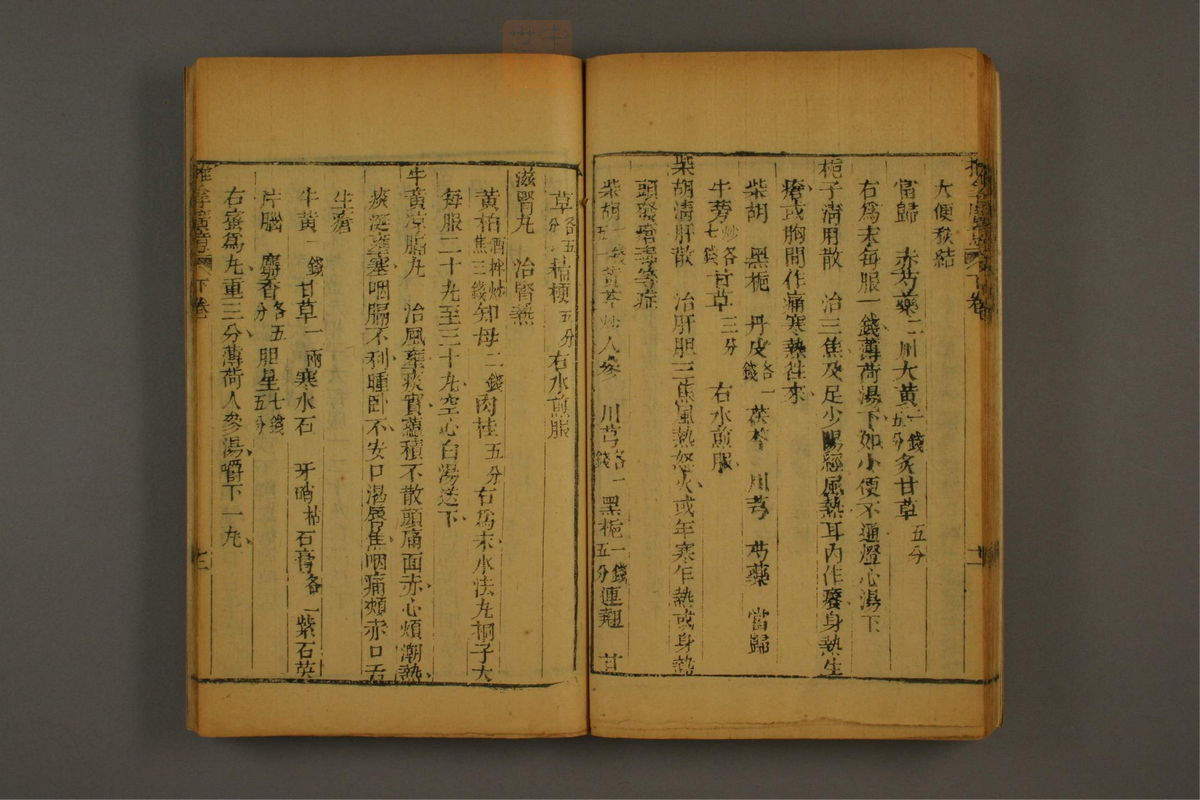 大便秘結
當歸　赤芍藥二　川大黃一錢五分　炙甘草五分
右爲末每服一錢薄荷湯下如小便不通燈心湯下
梔子清肝散　治三焦及足少陽經風熱耳內作癢身熱生
瘡或胸間作痛寒熱往來
柴胡　黑梔　丹皮各一錢　茯苓　川芎　芍藥　當歸
牛蒡炒各七錢　甘草三分　右水煎服
柴胡清肝散　治肝胆三焦風熱怒火或乍寒乍熱或身熱
頭發瘡毒等症
柴胡　黃芩炒　人參　川芎各一錢　黑梔一錢五分　連翹　甘
草各五分　桔梗五分　右水煎服
滋腎丸　治腎熱
黃柏酒拌炒焦三錢　知母二錢　肉桂五分　右爲末水法丸桐子大
每服二十丸至三十丸空心白湯送下
牛黃凉膈丸　治風壅痰實蘊積不散頭痛面赤心煩潮熱
痰涎壅塞咽膈不利睡臥不安口渴唇焦咽痛頰赤口舌
生瘡
牛黃一錢　甘草一兩　寒水石　牙硝枯　石膏各一　紫石英
片腦　麝香各五分　胆星七錢五分
右蜜爲丸重三分薄荷人參湯嚼下一丸
下卷